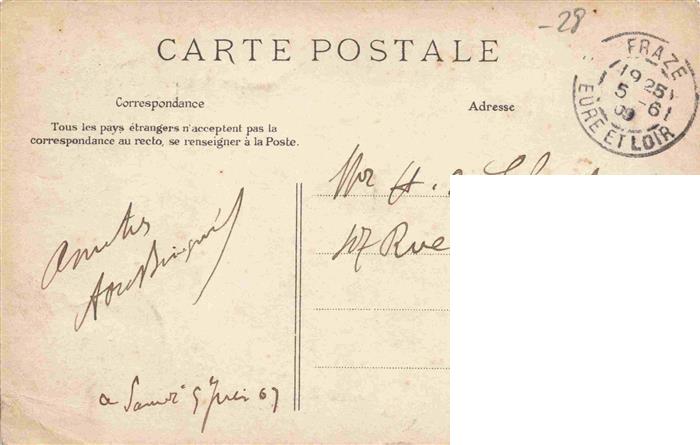 -28
CARTE POSTALE
FRAZE
1925
5 -6
09
EURE ET LOIR
Correspondance
Adresse
Tous les pays étrangers n'acceptent pas la
correspondance au recto, se renseigner à la Poste.
Mr H.
47 Rue
Amitiés
a Samedi 5 Juin